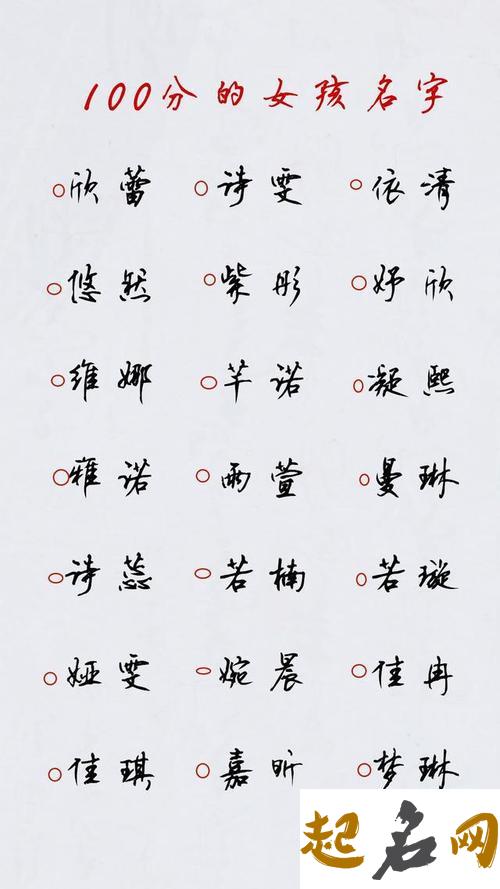 100分的女孩名字
欣蕾 诗雯 依清
悠然 紫彤 妤欣
维娜 芊诺 凝熙
雅诺 雨萱 曼琳
诗蕊 若楠 若璇
娅雯 婉晨 佳冉
佳琪 嘉昕 梦琳
起名网